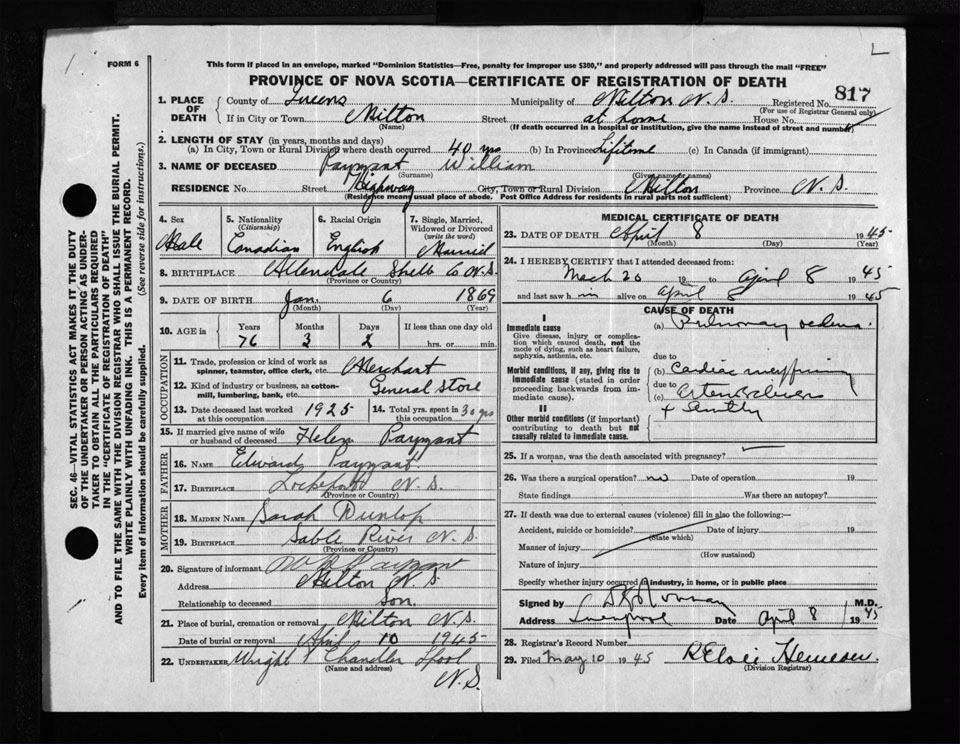 FORM 6
This form if placed in an envelope, marked "Dominion Statistics—Free, penalty for improper use $300," and properly addressed will pass through the mail "FREE"
PROVINCE OF NOVA SCOTIA—CERTIFICATE OF REGISTRATION OF DEATH
1. PLACE OF DEATH
County of Queens Municipality of Milton N.S. Registered No. 817
(For use of Registrar General only)
If in City or Town Milton Street at home House No.
(Name) (If death occurred in a hospital or institution, give the name instead of street and number)
2. LENGTH OF STAY (in years, months and days)
(a) In City, Town or Rural Division where death occurred 40 yrs (b) In Province Lifetime (c) In Canada (if immigrant)
3. NAME OF DECEASED Payzant William
(Surname) (Given name or names)
RESIDENCE No. Street Highway City, Town or Rural Division Milton Province N.S.
(Residence means usual place of abode. Post Office Address for residents in rural parts not sufficient)
4. Sex Male
5. Nationality (Citizenship) Canadian
6. Racial Origin English
7. Single, Married, Widowed or Divorced (write the word) Married
8. BIRTHPLACE Allendale Shelb Co N.S.
(Province or Country)
9. DATE OF BIRTH Jan. 6 1869
(Month) (Day) (Year)
10. AGE in Years Months Days If less than one day old
76 3 2 hrs. or min.
OCCUPATION
11. Trade, profession or kind of work as spinner, teamster, office clerk, etc. Merchant
12. Kind of industry or business, as cotton-mill, lumbering, bank, etc. General Store
13. Date deceased last worked at this occupation 1925
14. Total yrs. spent in this occupation 30 yrs
15. If married give name of wife or husband of deceased Helen Payzant
FATHER
16. NAME Edward Payzant
17. BIRTHPLACE N.S.
(Province or Country)
MOTHER
18. MAIDEN NAME Sarah Dunlop
19. BIRTHPLACE Sable River N.S.
(Province or Country)
20. Signature of informant Payzant
Address Milton N.S.
Relationship to deceased Son.
21. Place of burial, cremation or removal Milton N.S.
Date of burial or removal April 10 1945
22. UNDERTAKER Wright Chandler Lpool
(Name and address)
N.S.
MEDICAL CERTIFICATE OF DEATH
23. DATE OF DEATH April 8 1945
(Month) (Day) (Year)
24. I HEREBY CERTIFY that I attended deceased from:
Mach 20 19 to April 8 1945
and last saw him alive on April 8 1945
CAUSE OF DEATH
I
Immediate cause
Give disease, injury or complication which caused death, not the mode of dying, such as heart failure, asphyxia, asthenia, etc.
(a) Pulmonary oedema.
due to
Morbid conditions, if any, giving rise to immediate cause (stated in order proceeding backwards from immediate).
(b) Cardiac
due to
(c)
II
Other morbid conditions (if important) contributing to death but not causally related to immediate cause.
25. If a woman, was the death associated with pregnancy?
26. Was there a surgical operation? no Date of operation 19
State findings Was there an autopsy?
27. If death was due to external causes (violence) fill in also the following:—
Accident, suicide or homicide? Date of injury 19
(State which)
Manner of injury
(How sustained)
Nature of injury
Specify whether injury occurred in industry, in home, or in public place
Signed by M.D.
Address Liverpool Date April 8 1945
28. Registrar's Record Number
29. Filed May 10 1945
(Division Registrar)
SEC. 46—VITAL STATISTICS ACT MAKES IT THE DUTY
OF THE UNDERTAKER OR PERSON ACTING AS UNDER-
TAKER TO OBTAIN ALL THE PARTICULARS REQUIRED
IN THE "CERTIFICATE OF REGISTRATION OF DEATH"
AND TO FILE THE SAME WITH THE DIVISION REGISTRAR WHO SHALL ISSUE THE BURIAL PERMIT.
WRITE PLAINLY WITH UNFADING INK. THIS IS A PERMANENT RECORD.
Every item of information should be carefully supplied. (See reverse side for instructions.)